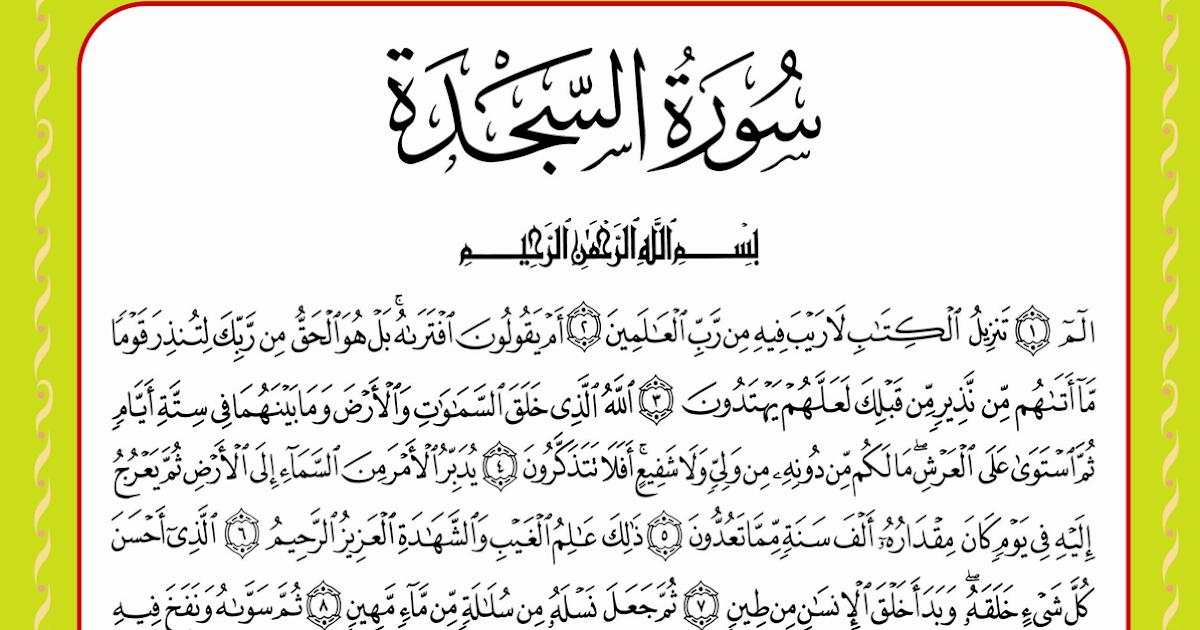 سُورَةُ السَّجْدَةِ
بِسْمِ ٱللَّهِ ٱلرَّحْمَٰنِ ٱلرَّحِيمِ
الٓمٓ ١ تَنزِيلُ ٱلْكِتَٰبِ لَا رَيْبَ فِيهِ مِن رَّبِّ ٱلْعَٰلَمِينَ ٢ أَمْ يَقُولُونَ ٱفْتَرَىٰهُ ۚ بَلْ هُوَ ٱلْحَقُّ مِن رَّبِّكَ لِتُنذِرَ قَوْمًا
مَّآ أَتَىٰهُم مِّن نَّذِيرٍ مِّن قَبْلِكَ لَعَلَّهُمْ يَهْتَدُونَ ٣ ٱللَّهُ ٱلَّذِى خَلَقَ ٱلسَّمَٰوَٰتِ وَٱلْأَرْضَ وَمَا بَيْنَهُمَا فِى سِتَّةِ أَيَّامٍ
ثُمَّ ٱسْتَوَىٰ عَلَى ٱلْعَرْشِ ۖ مَا لَكُم مِّن دُونِهِۦ مِن وَلِىٍّ وَلَا شَفِيعٍ ۚ أَفَلَا تَتَذَكَّرُونَ ٤ يُدَبِّرُ ٱلْأَمْرَ مِنَ ٱلسَّمَآءِ إِلَى ٱلْأَرْضِ ثُمَّ يَعْرُجُ
إِلَيْهِ فِى يَوْمٍ كَانَ مِقْدَارُهُۥٓ أَلْفَ سَنَةٍ مِّمَّا تَعُدُّونَ ٥ ذَٰلِكَ عَٰلِمُ ٱلْغَيْبِ وَٱلشَّهَٰدَةِ ٱلْعَزِيزُ ٱلرَّحِيمُ ٦ ٱلَّذِىٓ أَحْسَنَ
كُلَّ شَىْءٍ خَلَقَهُۥ ۖ وَبَدَأَ خَلْقَ ٱلْإِنسَٰنِ مِن طِينٍ ٧ ثُمَّ جَعَلَ نَسْلَهُۥ مِن سُلَٰلَةٍ مِّن مَّآءٍ مَّهِينٍ ٨ ثُمَّ سَوَّىٰهُ وَنَفَخَ فِيهِ